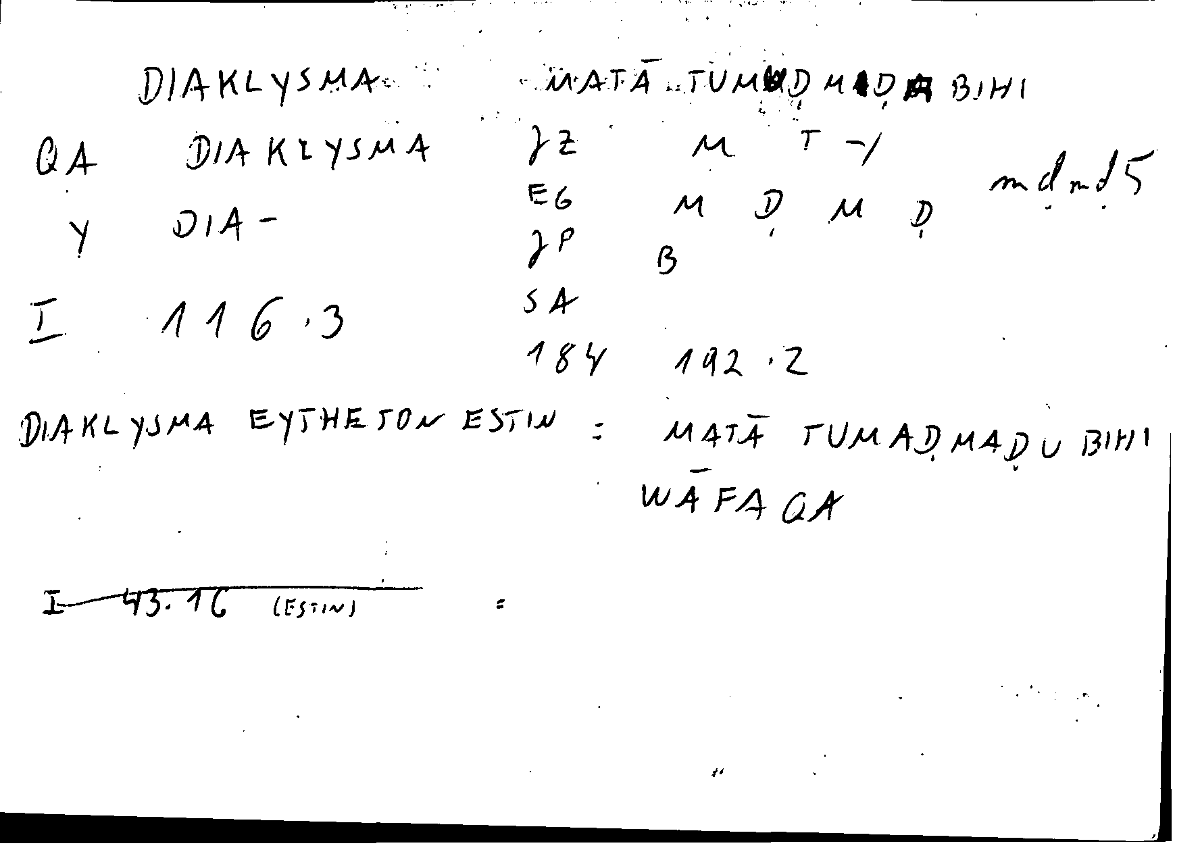 DIAKLYSMA MATĀ TUMAḌMAḌA BIHI
QA DIAKLYSMA JZ M T -Y
EG M Ḍ M Ḍ mḍmḍ5
Y DIA-
JP B
SA
I 116.3
184 192.2
DIAKLYSMA EYTHETON ESTIN = MATĀ TUMAḌMAḌU BIHI
WĀFAQA
I 43.16 (ESTIN) =